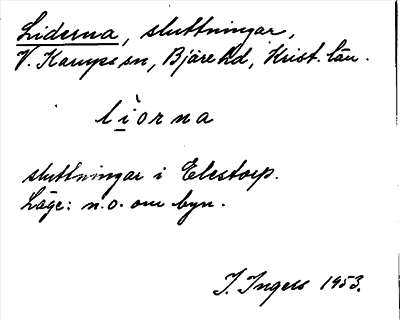 Liderna, sluttningar,
V. Karups sn, Bjäre hd, Krist. län.
lìorna
sluttningar i Elestorp.
Läge: n.o. om byn.
I. Ingers 1953.